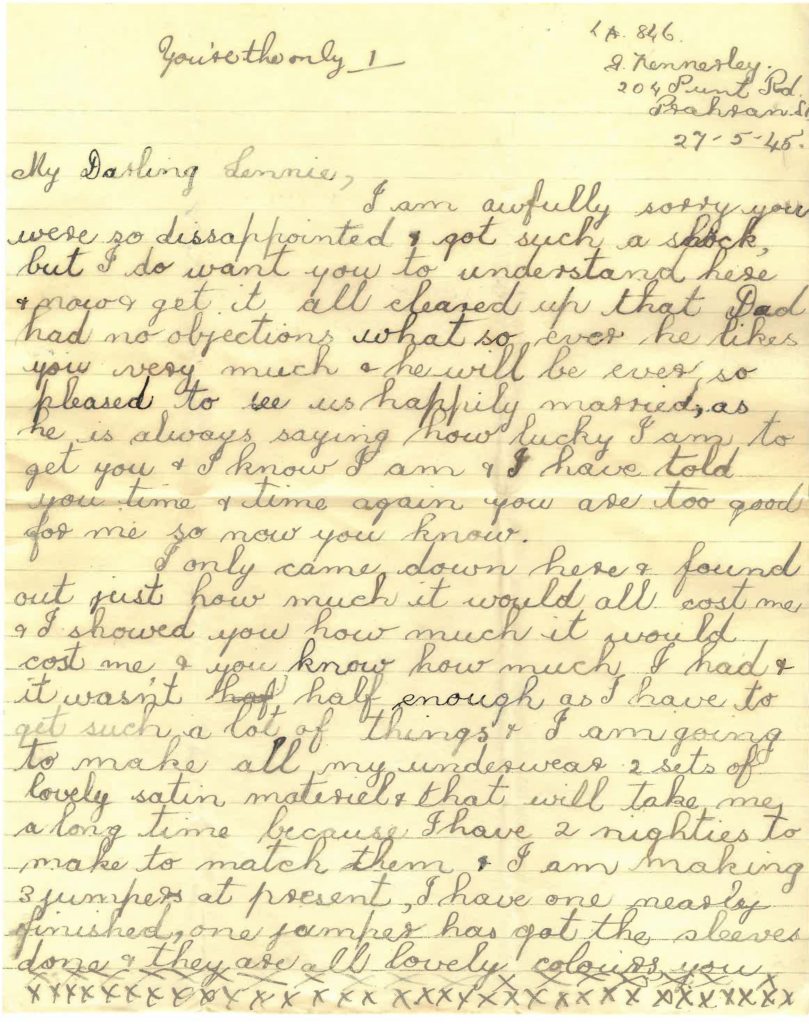 You're the only 1
LA. 846.
J. Kennerley.
204 Punt Rd.
Prahran
27-5-45.
My Darling Lennie,
I am awfully sorry you
were so dissappointed & got such a shock,
but I do want you to understand here
& now & get it all cleared up that Dad
had no objections what so ever he likes
you very much & he will be ever so
pleased to see us happily married, as
he is always saying how lucky I am to
get you & I know I am & I have told
you time & time again you are too good
for me so now you know.
I only came down here & found
out just how much it would all cost me
& I showed you how much it would
cost me & you know how much I had &
it wasn't haf half enough as I have to
get such a lot of things & I am going
to make all my underwear 2 sets of
lovely satin materiel & that will take me
a long time because I have 2 nighties to
make to match them & I am making
3 jumpers at present, I have one nearly
finished, one jumper has got the sleeves
done & they are all lovely colours, you
xxxxxxxxxxxxxxxxxxxxxxxxxxxxxxxx